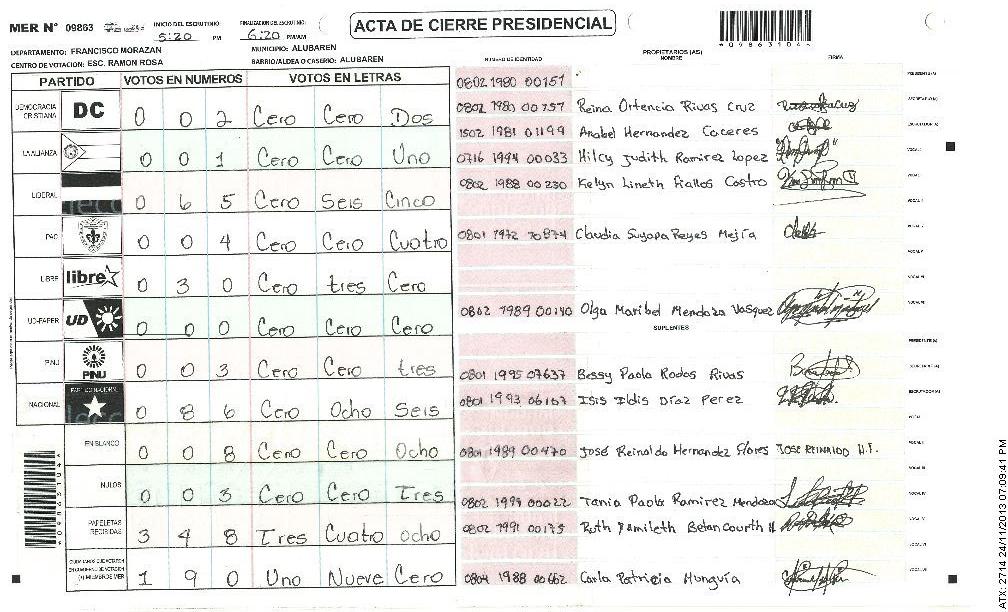 MER N° 09863
INICIO DEL ESCRUTINIO
5:20 PM
FINALIZACION DEL ESCRUTINIO:
6:20 PM/AM
ACTA DE CIERRE PRESIDENCIAL
*09863104*
DEPARTAMENTO: FRANCISCO MORAZAN
MUNICIPIO: ALUBAREN
CENTRO DE VOTACION: ESC. RAMON ROSA
BARRIO/ALDEA O CASERIO: ALUBAREN
PARTIDO VOTOS EN NUMEROS VOTOS EN LETRAS
DEMOCRACIA CRISTIANA DC 0 0 2 Cero Cero Dos
LA ALIANZA 0 0 1 Cero Cero Uno
LIBERAL 0 6 5 Cero Seis Cinco
PAC 0 0 4 Cero Cero Cuatro
LIBRE libre 0 3 0 Cero tres Cero
UD-FAPER UD 0 0 0 Cero Cero Cero
PINU PINU 0 0 3 Cero Cero tres
NACIONAL PARTIDO NACIONAL 0 8 6 Cero Ocho Seis
EN BLANCO 0 0 8 Cero Cero Ocho
NULOS 0 0 3 Cero Cero Tres
PAPELETAS RECIBIDAS 3 4 8 Tres Cuatro Ocho
(+) MIEMBROS MER 1 9 0 Uno Nueve Cero
*09863104*
NUMERO DE IDENTIDAD
PROPIETARIOS (AS)
NOMBRE
FIRMA
0802 1980 00157
PRESIDENTE (A)
0802 1980 00757 Reina Ortencia Rivas Cruz
SECRETARIO (A)
1502 1981 01199 Anabel Hernandez Caceres
ESCRUTADOR (A)
0716 1994 00033 Hilcy Judith Ramirez Lopez
VOCAL I
0802 1988 00230 Kelyn Lineth Fiallos Castro
VOCAL II
0801 1972 70874 Claudia Suyapa Reyes Mejía
0802 1989 00140 Olga Maribel Mendoza Vasquez
SUPLENTES
PRESIDENTE (A)
0801 1995 07637 Bessy Paola Rodas Rivas
SECRETARIO (A)
0801 1993 06167 Isis Ildis Díaz Perez
ESCRUTADOR (A)
0801 1989 00470 José Reinaldo Hernandez Flores JOSE REINALDO H.F.
0802 1999 00022 Tania Paola Ramirez Mendoza
0802 1991 00175 Ruth Yamileth Betancourth H
0804 1988 00662 Carla Patricia Munguía
ATX: 2714 24/11/2013 07:09:41 PM